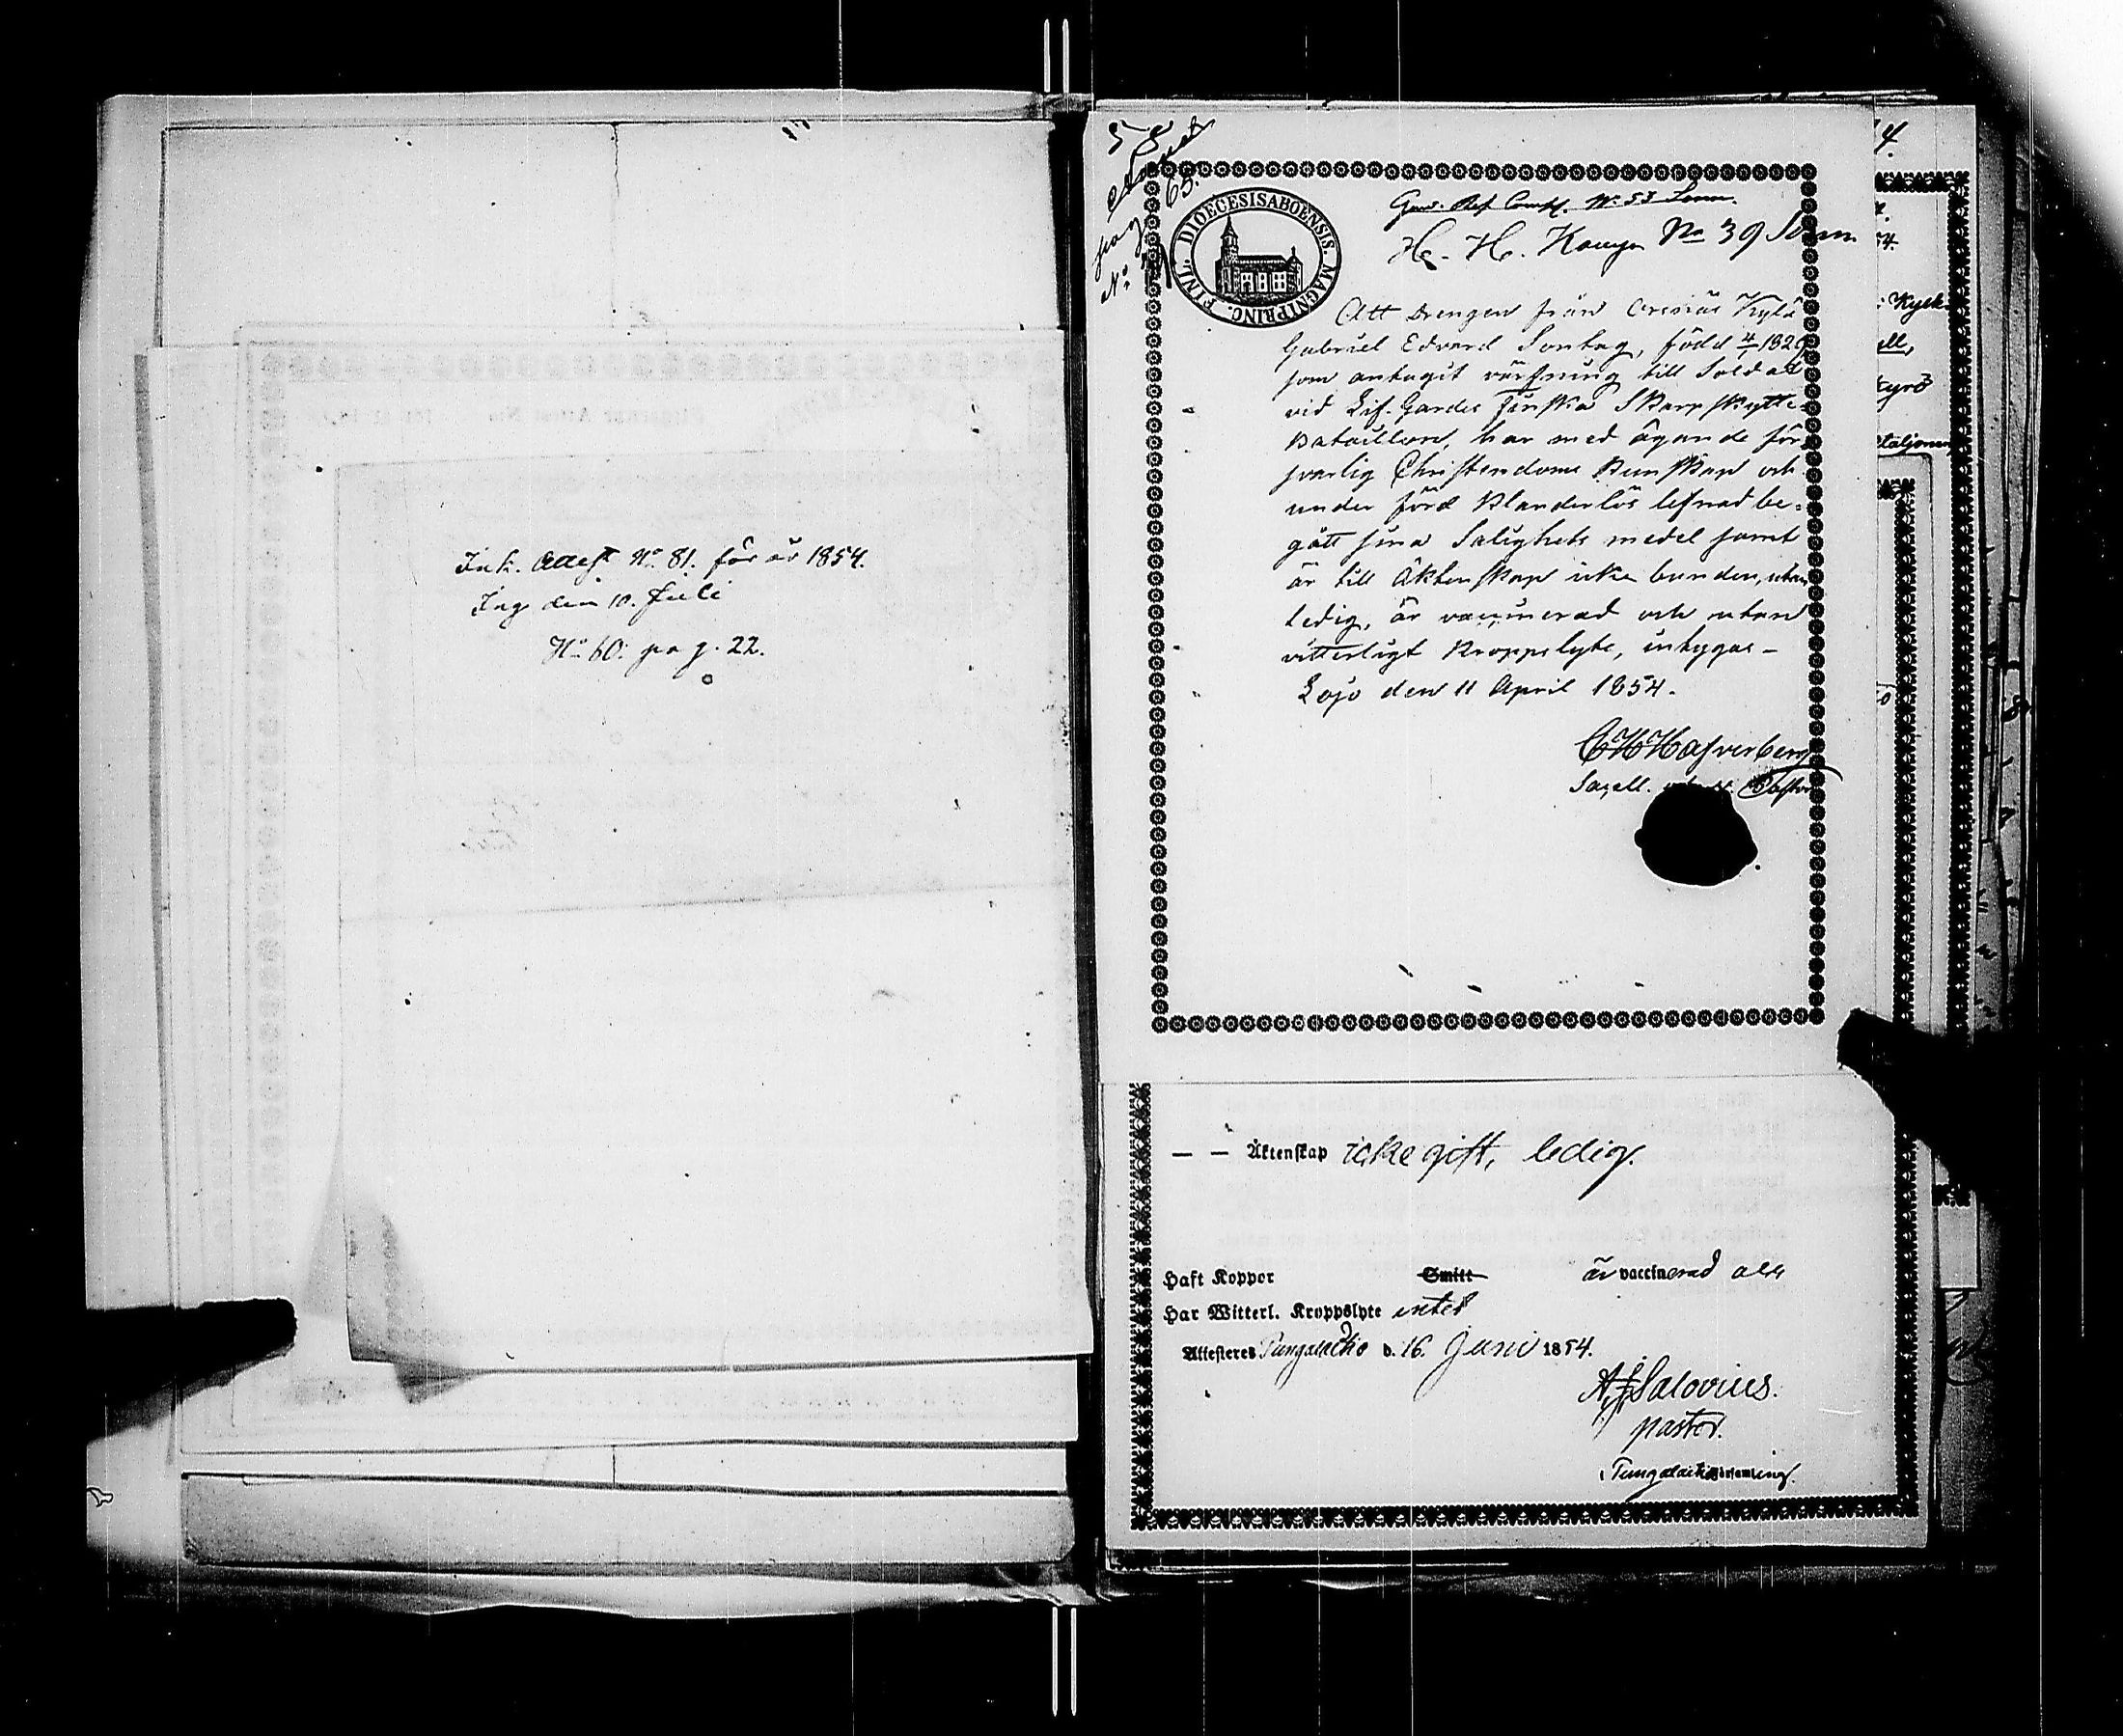 Ink. Attest No 81. för år 1854.
Ing den 10. Juli
No 60: pag. 22.
58
pag 65.
No
FINL. DIOECESIS ABOENSIS. MAGNI PRINC.
No 53
No 39
Att Drengen från Kylä
Gabriel Edvard Sontag, född 4/1 1829
som antagit värfning till Soldat
vid Lif-Gardes Finska Skarpskytte-
Bataillon, har med ägande för-
svarlig Christendoms Kunskap och
under förd Klanderlös lefnad be-
gått sina Salighets medel samt
är till Äktenskap icke bunden, utan
ledig, är vaccinerad och utan
vitterligt Kroppslyte, intygas -
Lojo den 11 April 1854.
Sacell. Pastor
— — Äktenskap icke gift, ledig.
Haft Koppor Smitt är vaccinerad
Har Witterl. Kroppslyte intet
Attesteras d. 16. Juni 1854.
Salovius.
pastor.
församling.
14.
54.
Kyrk
ell,
kyrö